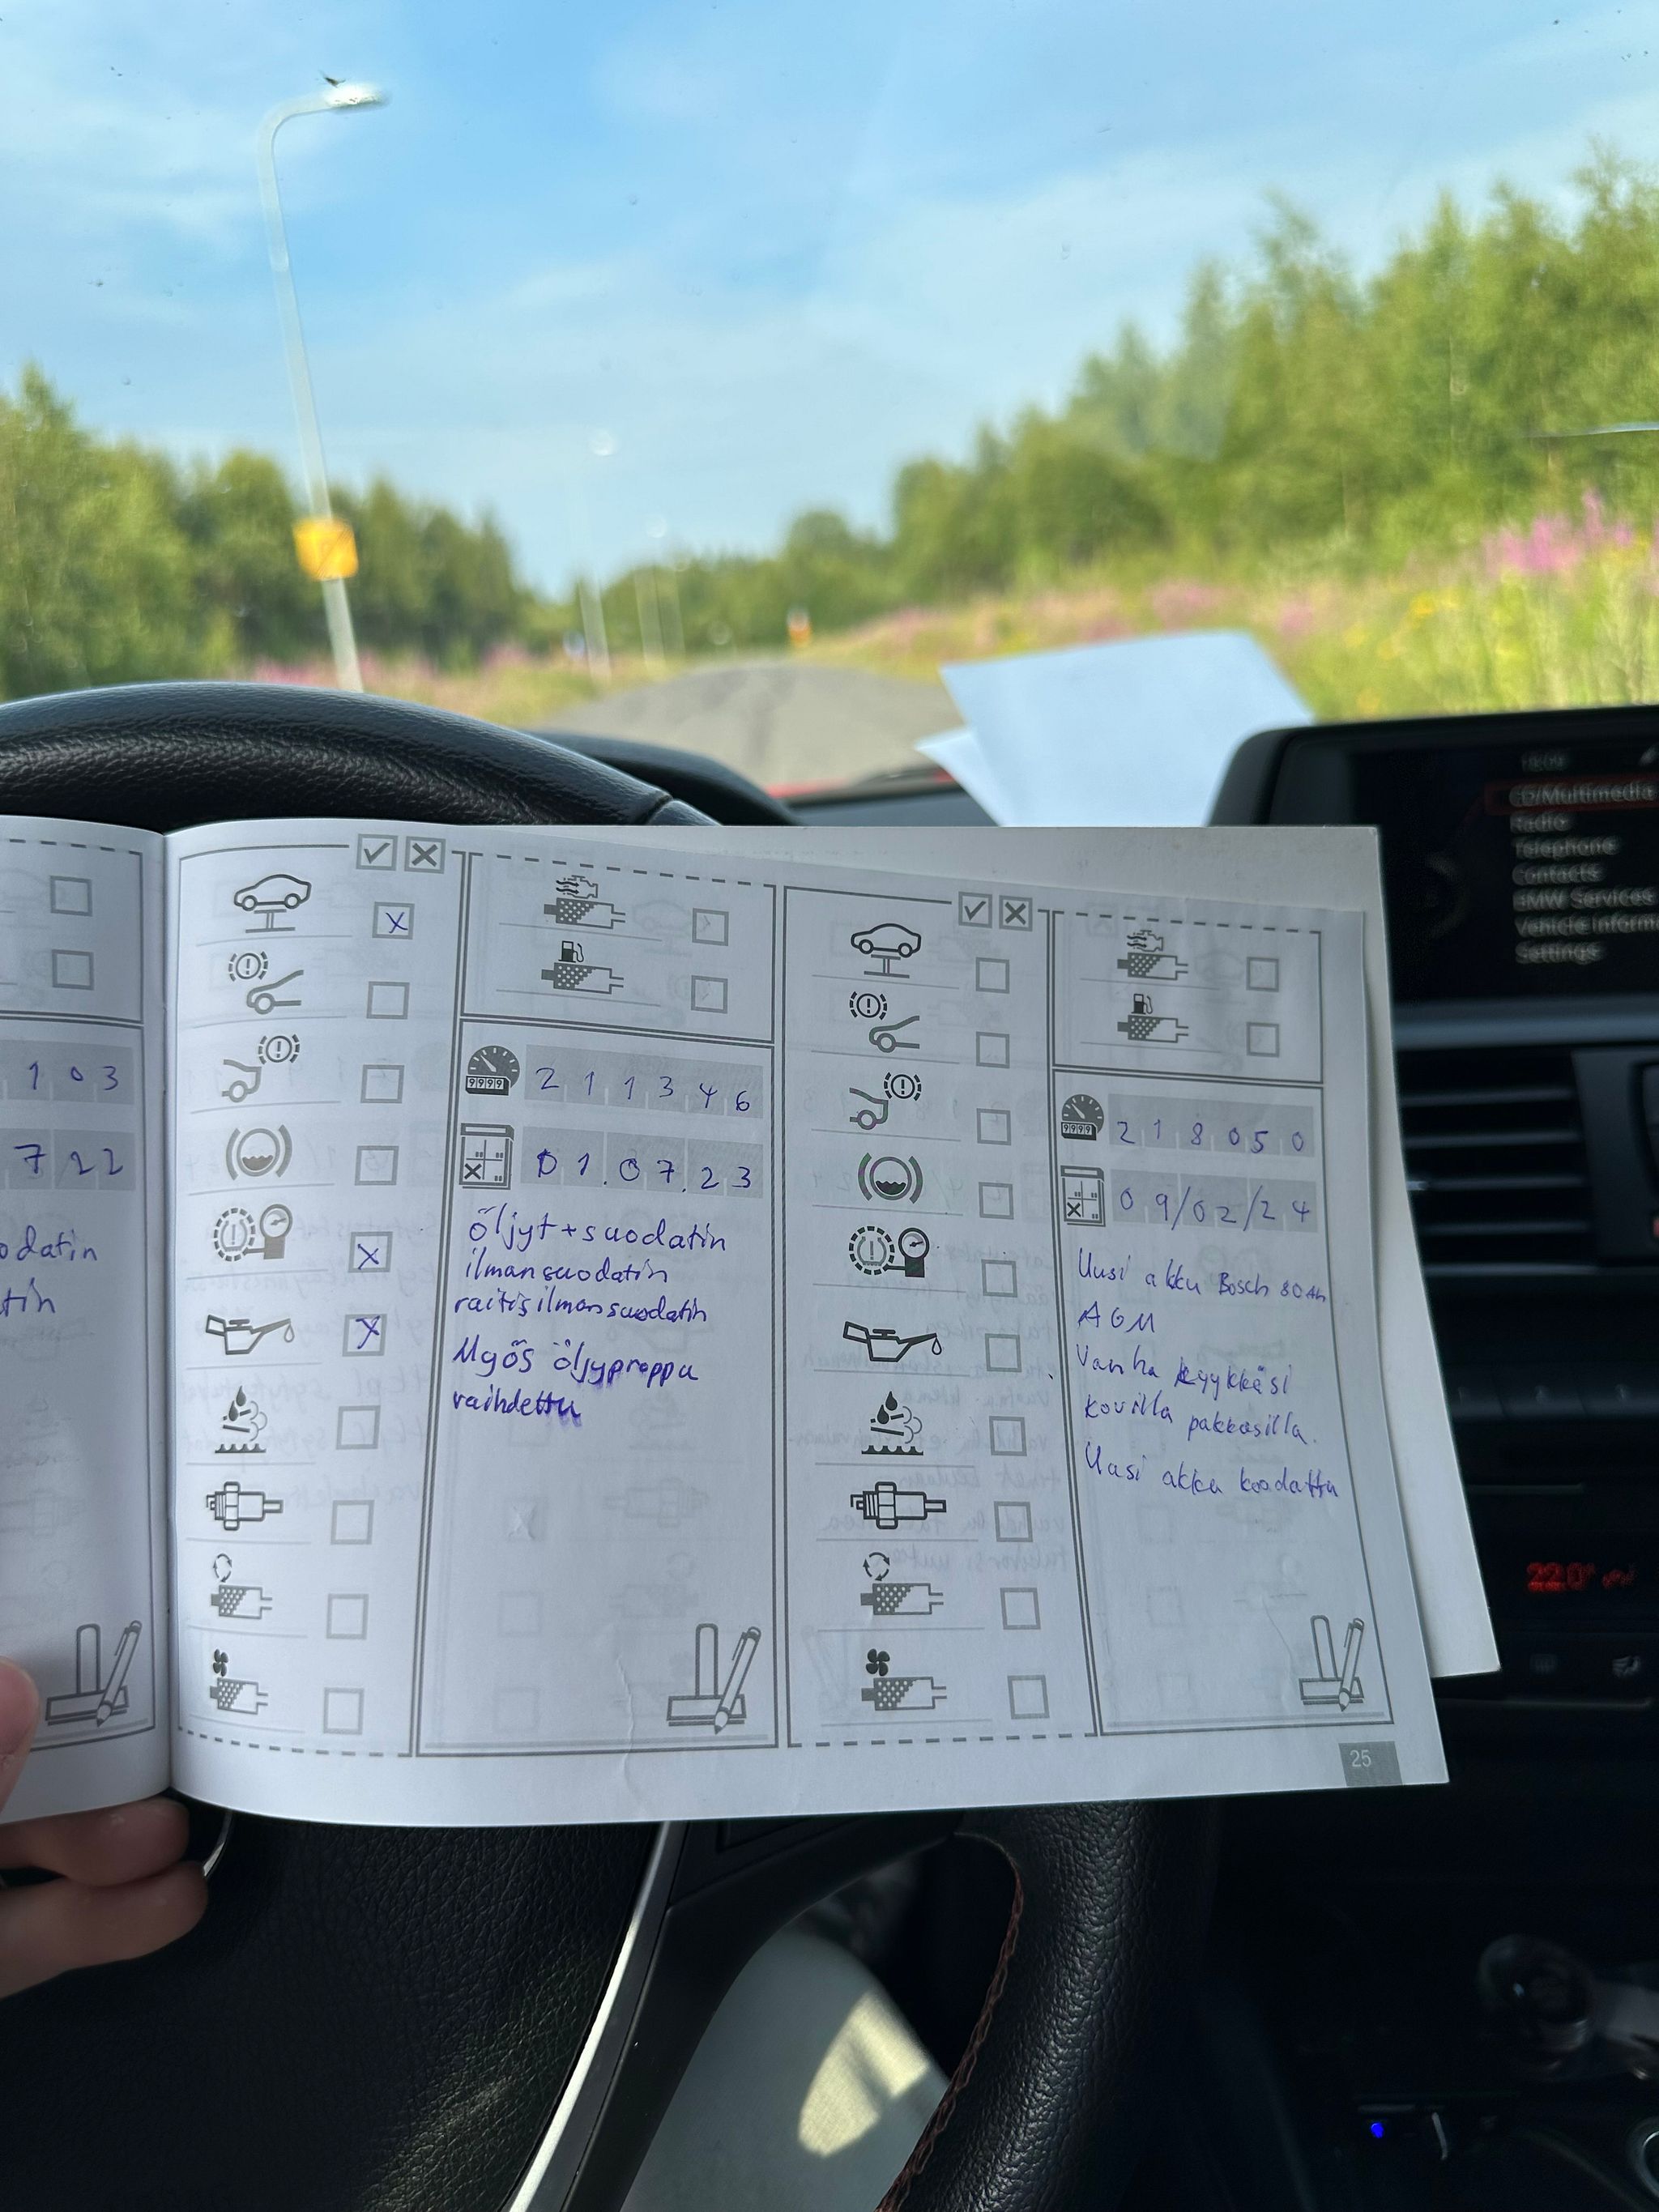 1 0 3
7 2 2
odatin
tin
9999
2 1 1 3 4 6
0 1 . 0 7 . 2 3
Öljyt + suodatin
ilmansuodatin
raitisilmansuodatin
Myös öljyproppu
vaihdettu
9999
2 1 8 0 5 0
0 9 / 0 2 / 2 4
Uusi akku Bosch 80 Ah
AGM
Vanha kyykkäsi
kovilla pakkasilla.
Uusi akku koodattu
25
18:09
CD/Multimedia
Radio
Telephone
Contacts
BMW Services
Vehicle inform
Settings
22.0°